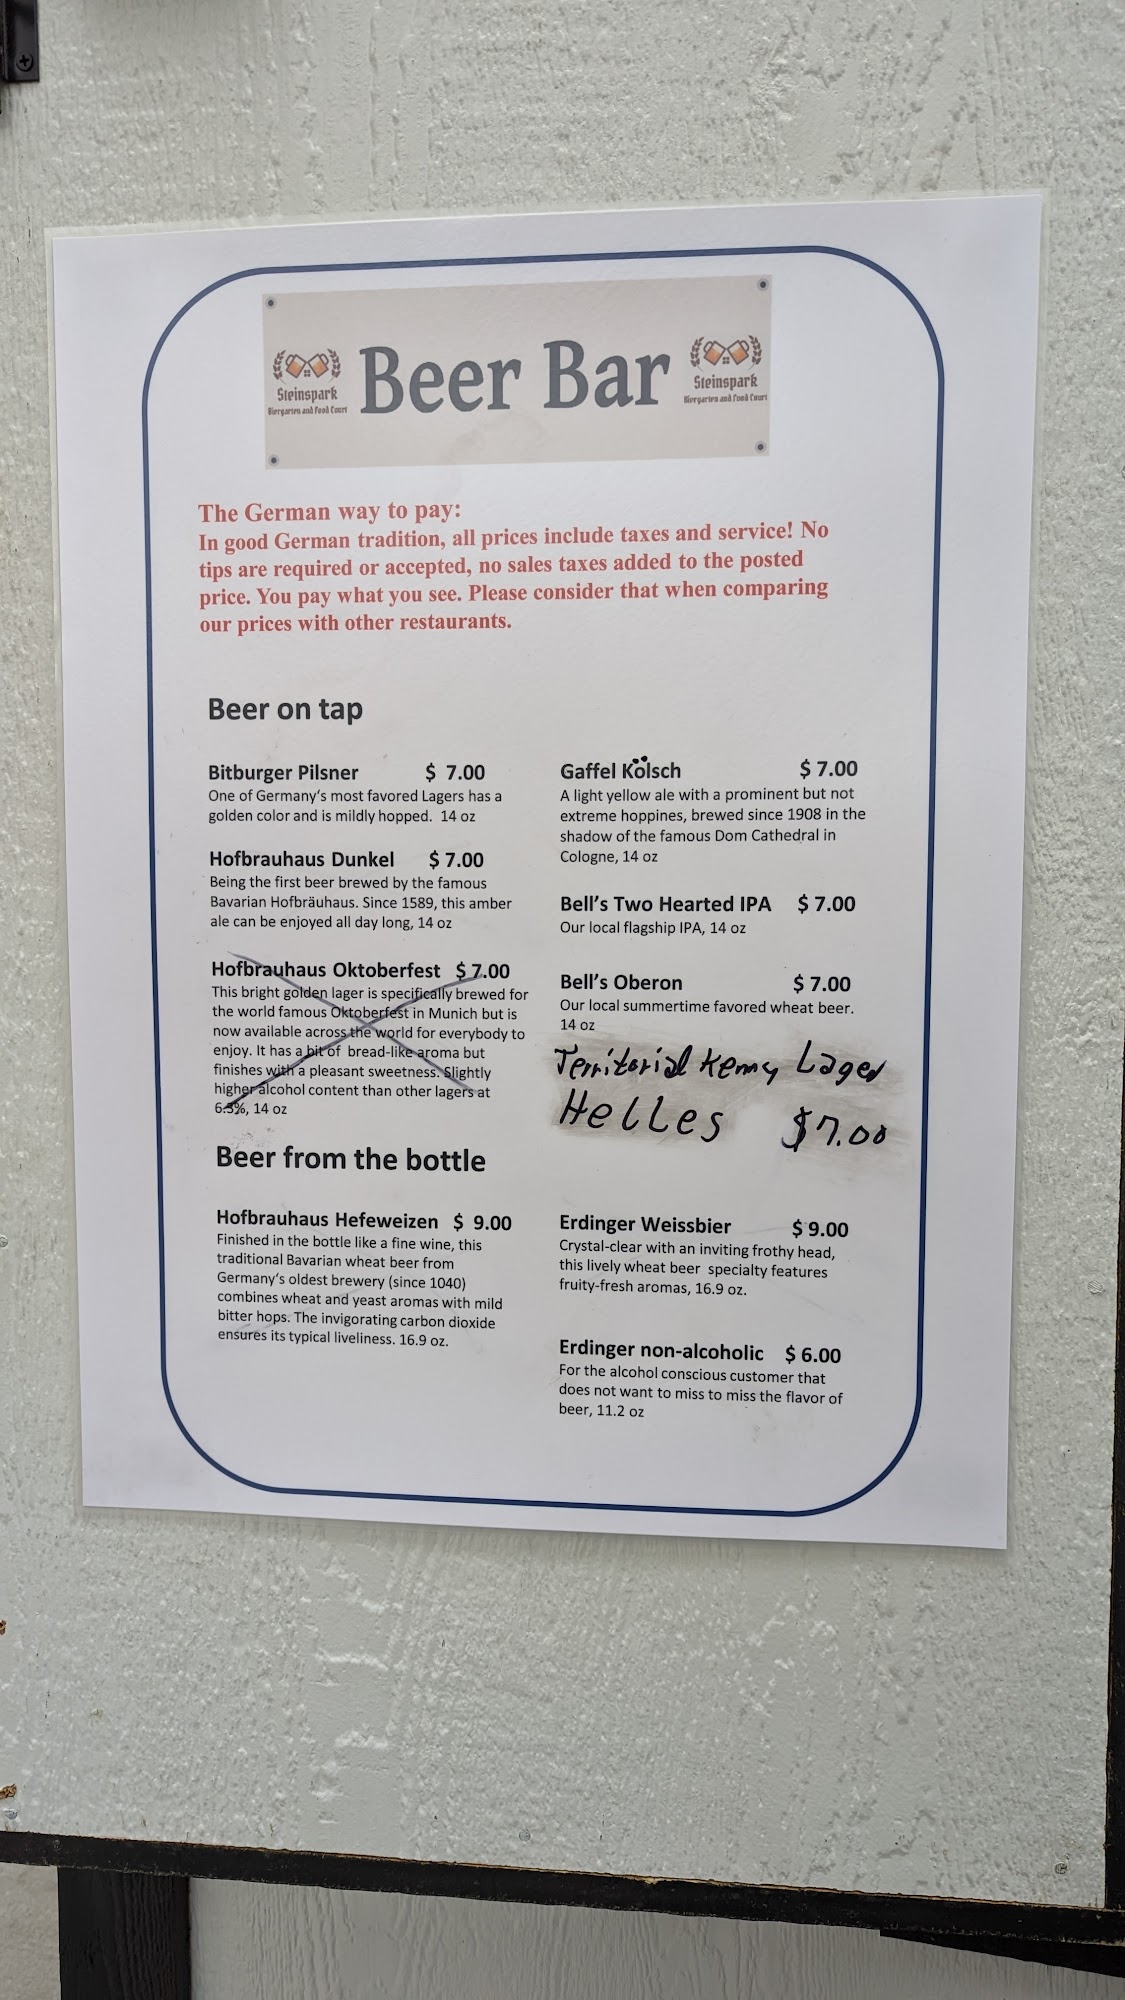 Beer Bar
Steinspark
Biergarten and Food Court
Steinspark
Biergarten and Food Court
The German way to pay:
In good German tradition, all prices include taxes and service! No
tips are required or accepted, no sales taxes added to the posted
price. You pay what you see. Please consider that when comparing
our prices with other restaurants.
Beer on tap
Bitburger Pilsner $ 7.00
One of Germany's most favored Lagers has a
golden color and is mildly hopped. 14 oz
Hofbrauhaus Dunkel $ 7.00
Being the first beer brewed by the famous
Bavarian Hofbräuhaus. Since 1589, this amber
ale can be enjoyed all day long, 14 oz
Hofbrauhaus Oktoberfest $ 7.00
This bright golden lager is specifically brewed for
the world famous Oktoberfest in Munich but is
now available across the world for everybody to
enjoy. It has a bit of bread-like aroma but
finishes with a pleasant sweetness. Slightly
higher alcohol content than other lagers at
6.3%, 14 oz
Gaffel Kölsch $ 7.00
A light yellow ale with a prominent but not
extreme hoppines, brewed since 1908 in the
shadow of the famous Dom Cathedral in
Cologne, 14 oz
Bell's Two Hearted IPA $ 7.00
Our local flagship IPA, 14 oz
Bell's Oberon $ 7.00
Our local summertime favored wheat beer.
14 oz
Territorial Lager
Helles $7.00
Beer from the bottle
Hofbrauhaus Hefeweizen $ 9.00
Finished in the bottle like a fine wine, this
traditional Bavarian wheat beer from
Germany's oldest brewery (since 1040)
combines wheat and yeast aromas with mild
bitter hops. The invigorating carbon dioxide
ensures its typical liveliness. 16.9 oz.
Erdinger Weissbier $ 9.00
Crystal-clear with an inviting frothy head,
this lively wheat beer specialty features
fruity-fresh aromas, 16.9 oz.
Erdinger non-alcoholic $ 6.00
For the alcohol conscious customer that
does not want to miss to miss the flavor of
beer, 11.2 oz